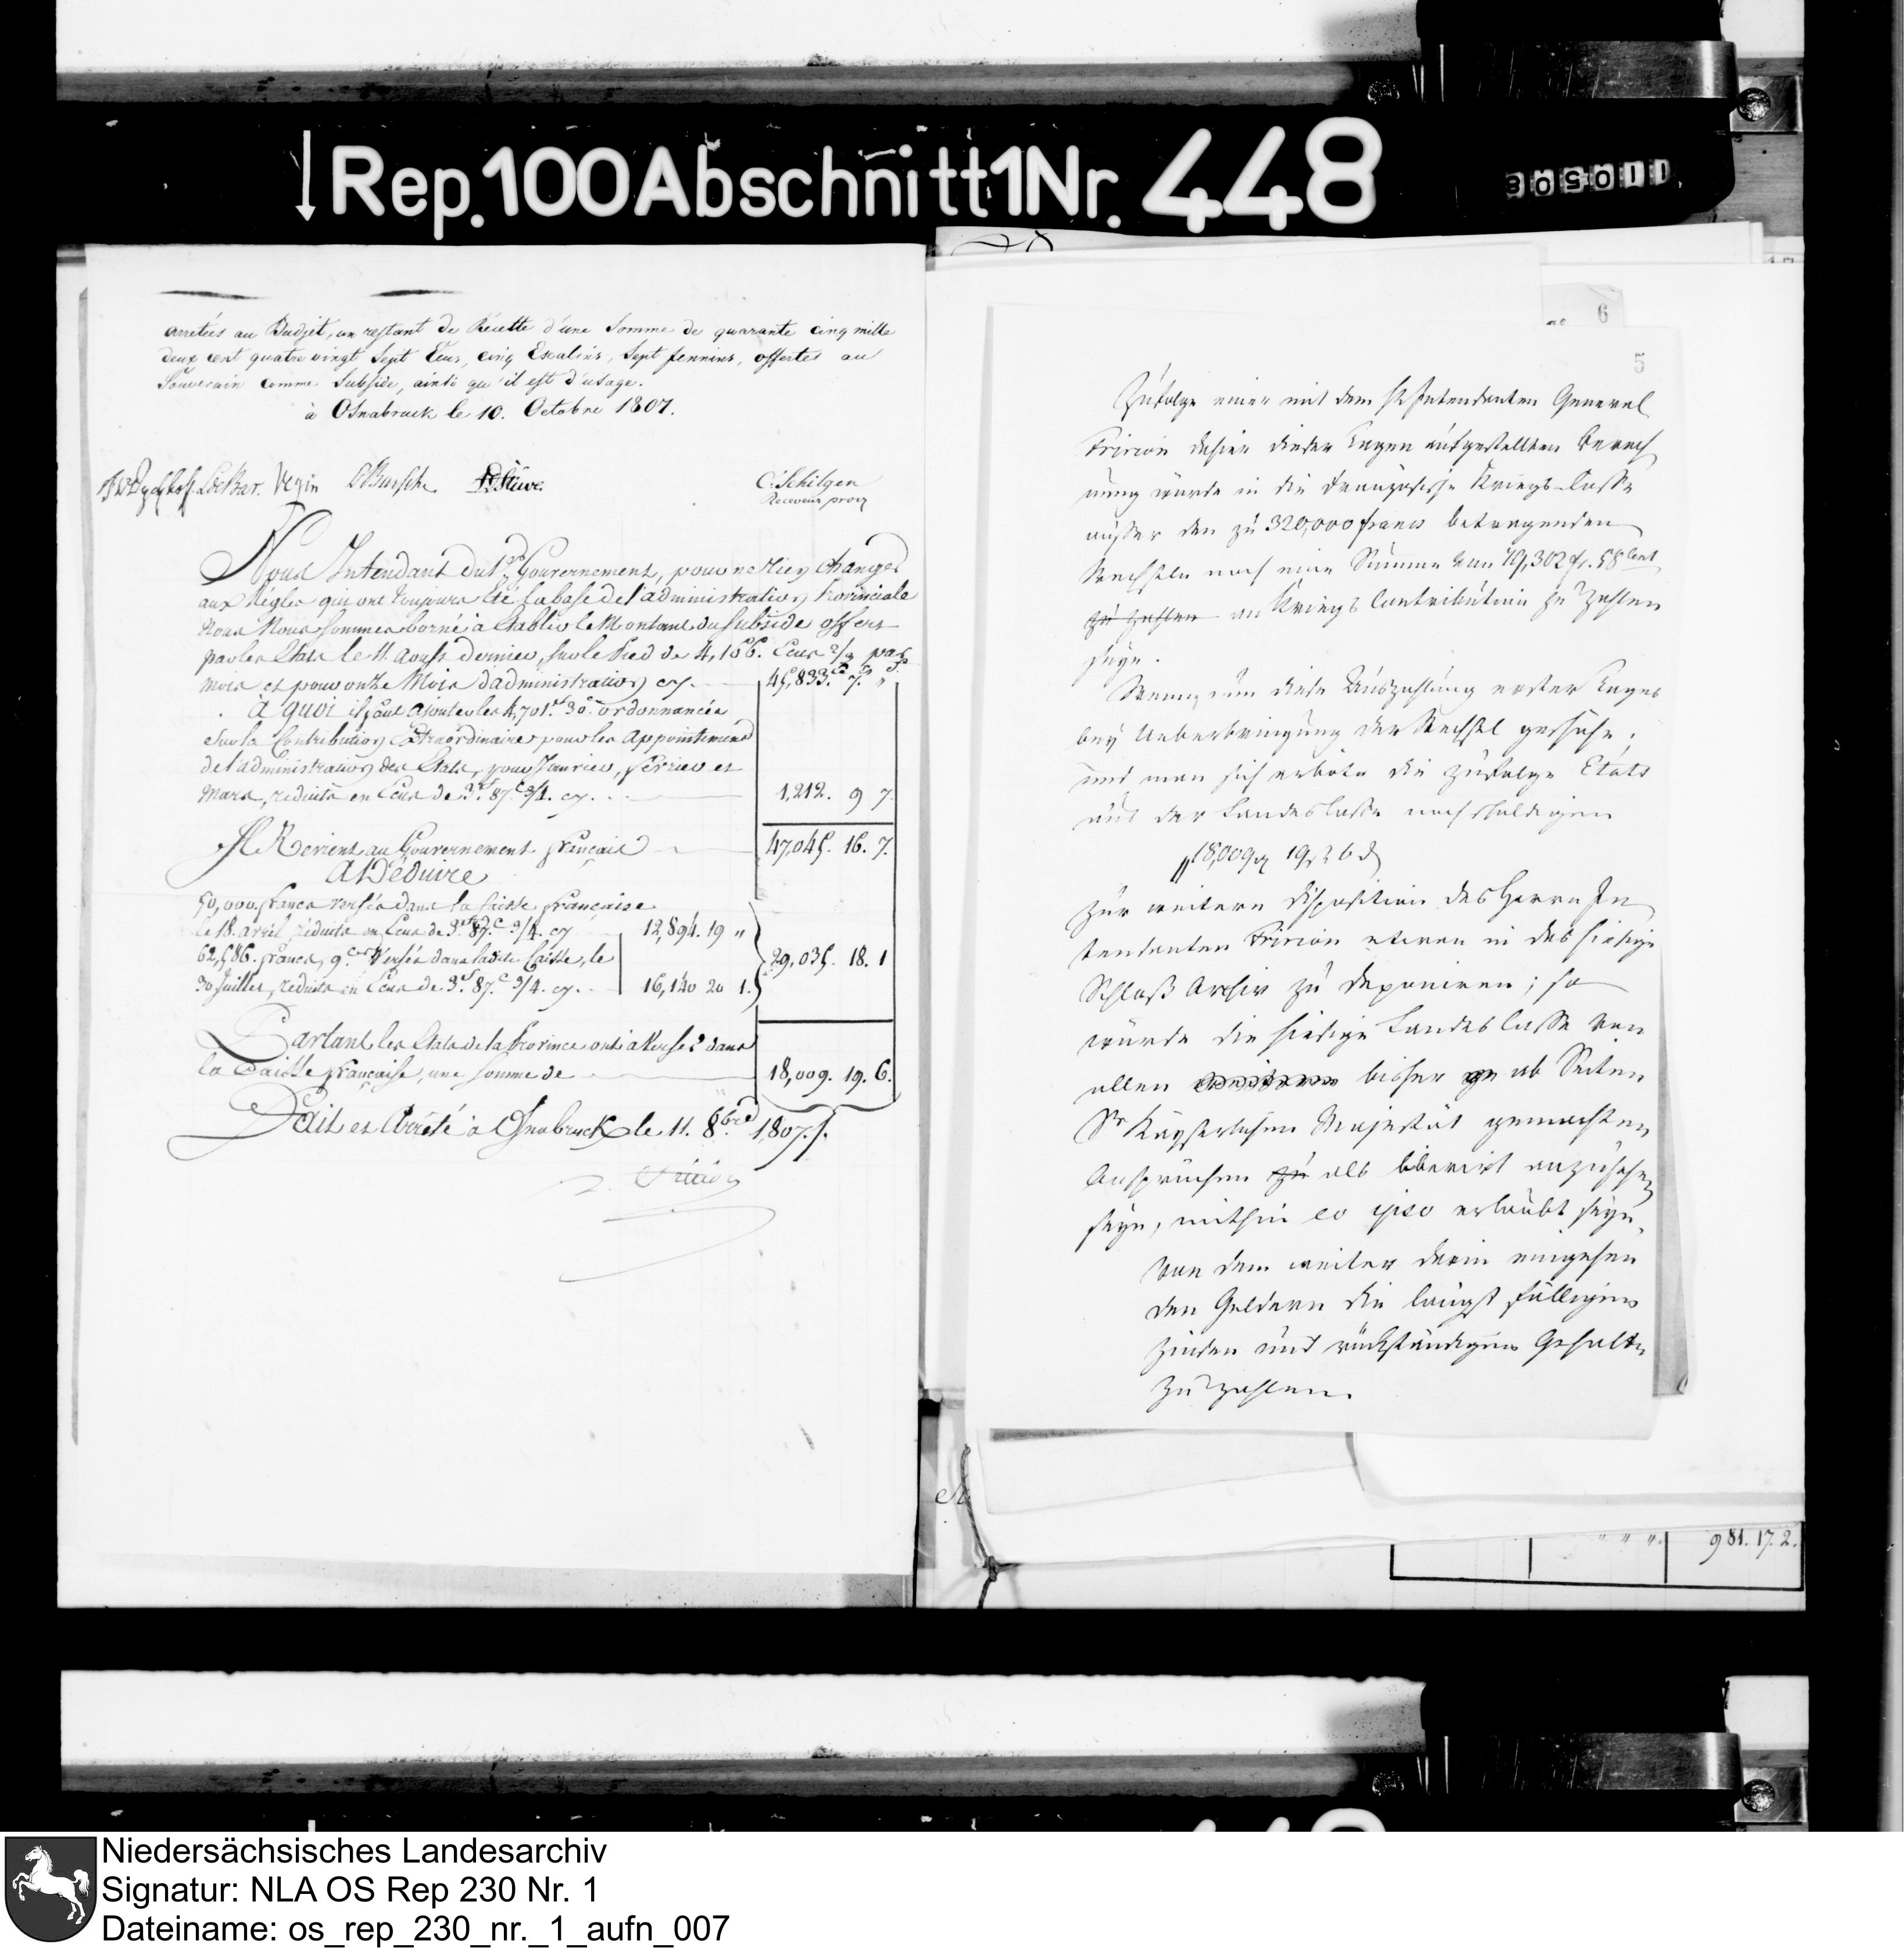 Rep.100 Abschnitt 1 Nr. 448
110508
arretées au Budjet, un restant de Récette d'une Somme de quarante cinq mille
deux cent quatre vingt Sept Ecus, cinq Escalins, Sept fennins, offertes au
Souverain comme Subside, ainsi qu'il est d'usage.
à Osnabruck le 10. Octobre 1807.
Vezin
Stüve
C. Schilgen
Receveur prov
Nous Intendant du Gouvernement, pour ne rien changer
aux Régles qui ont toujours été la base de l'administration Provinciale
Nous Nous sommes borné à établir le Montant du Subside offert
par les Etats le 11. aouft dernier, sur le Pied de 4,166. Ecus 2/3 par
mois et pour onze Mois d'administration cy. 45,833. 7. "
à quoi il faut ajouter les 4,701. 30. ordonnancés
Sur la Contribution Extraordinaire pour les appointemens
de l'administration des Etats, pour Janvier, Fevrier et
Mars, reduits en Ecus de 3. 87. 3/4. cy. 1,212. 9 7.
Il Revient au Gouvernement français 47,045. 16. 7.
A Déduire
50,000 francs versés dans la Caisse française
le 18. avril, réduits en Ecus de 3. 87. 3/4. cy 12,894. 19 "
62,586. francs, 9. Versés dans ladite Caisse, le
30 Juillet, reduits en Ecus de 3. 87. 3/4. cy. 16,140 20 1.
29,035. 18. 1
Partant les Etats de la Province ont à Verser dans
la Caisse française, une somme de 18,009. 19. 6.
Fait et Arrêté à Osnabruck le 11. 8bre 1807.
6
5
Zufolge einer mit dem H Intendanten General
Fririon dahier dieser Tagen aufgestellten Berech
nung wurde in die Französische Kriegs-Casse
ausser den zu 320,000 francs betragenden
Wechseln noch eine Summe von 19,302 fr. 58 Cent
zu zahlen an Kriegs Contribution zu zahlen
seyn.
Wenn nun diese Auszahlung erster Tages
bey Ueberbringung der Wechsel geschähe,
und man sich erböte die zufolge Etats
aus der Landes Casse noch schuldigen
18,009 19 6
zur weitern Disposition des Herrn In
tendanten Fririon etwan in das hiesige
Schloß Archiv zu deponiren; so
würde die hiesige Landes Casse von
allen bisher ab Seiten
Sr Kayserlichen Majestät gemachten
Ansprüchen zu als liberirt anzusehen
seyn, mithin eo ipso erlaubt seyn,
von den weiter darin eingehen
den Geldern die längst fälligen
Zinsen und rückständigen Gehalte
zu zahlen.
981. 17. 2.
Niedersächsisches Landesarchiv
Signatur: NLA OS Rep 230 Nr. 1
Dateiname: os_rep_230_nr._1_aufn_007